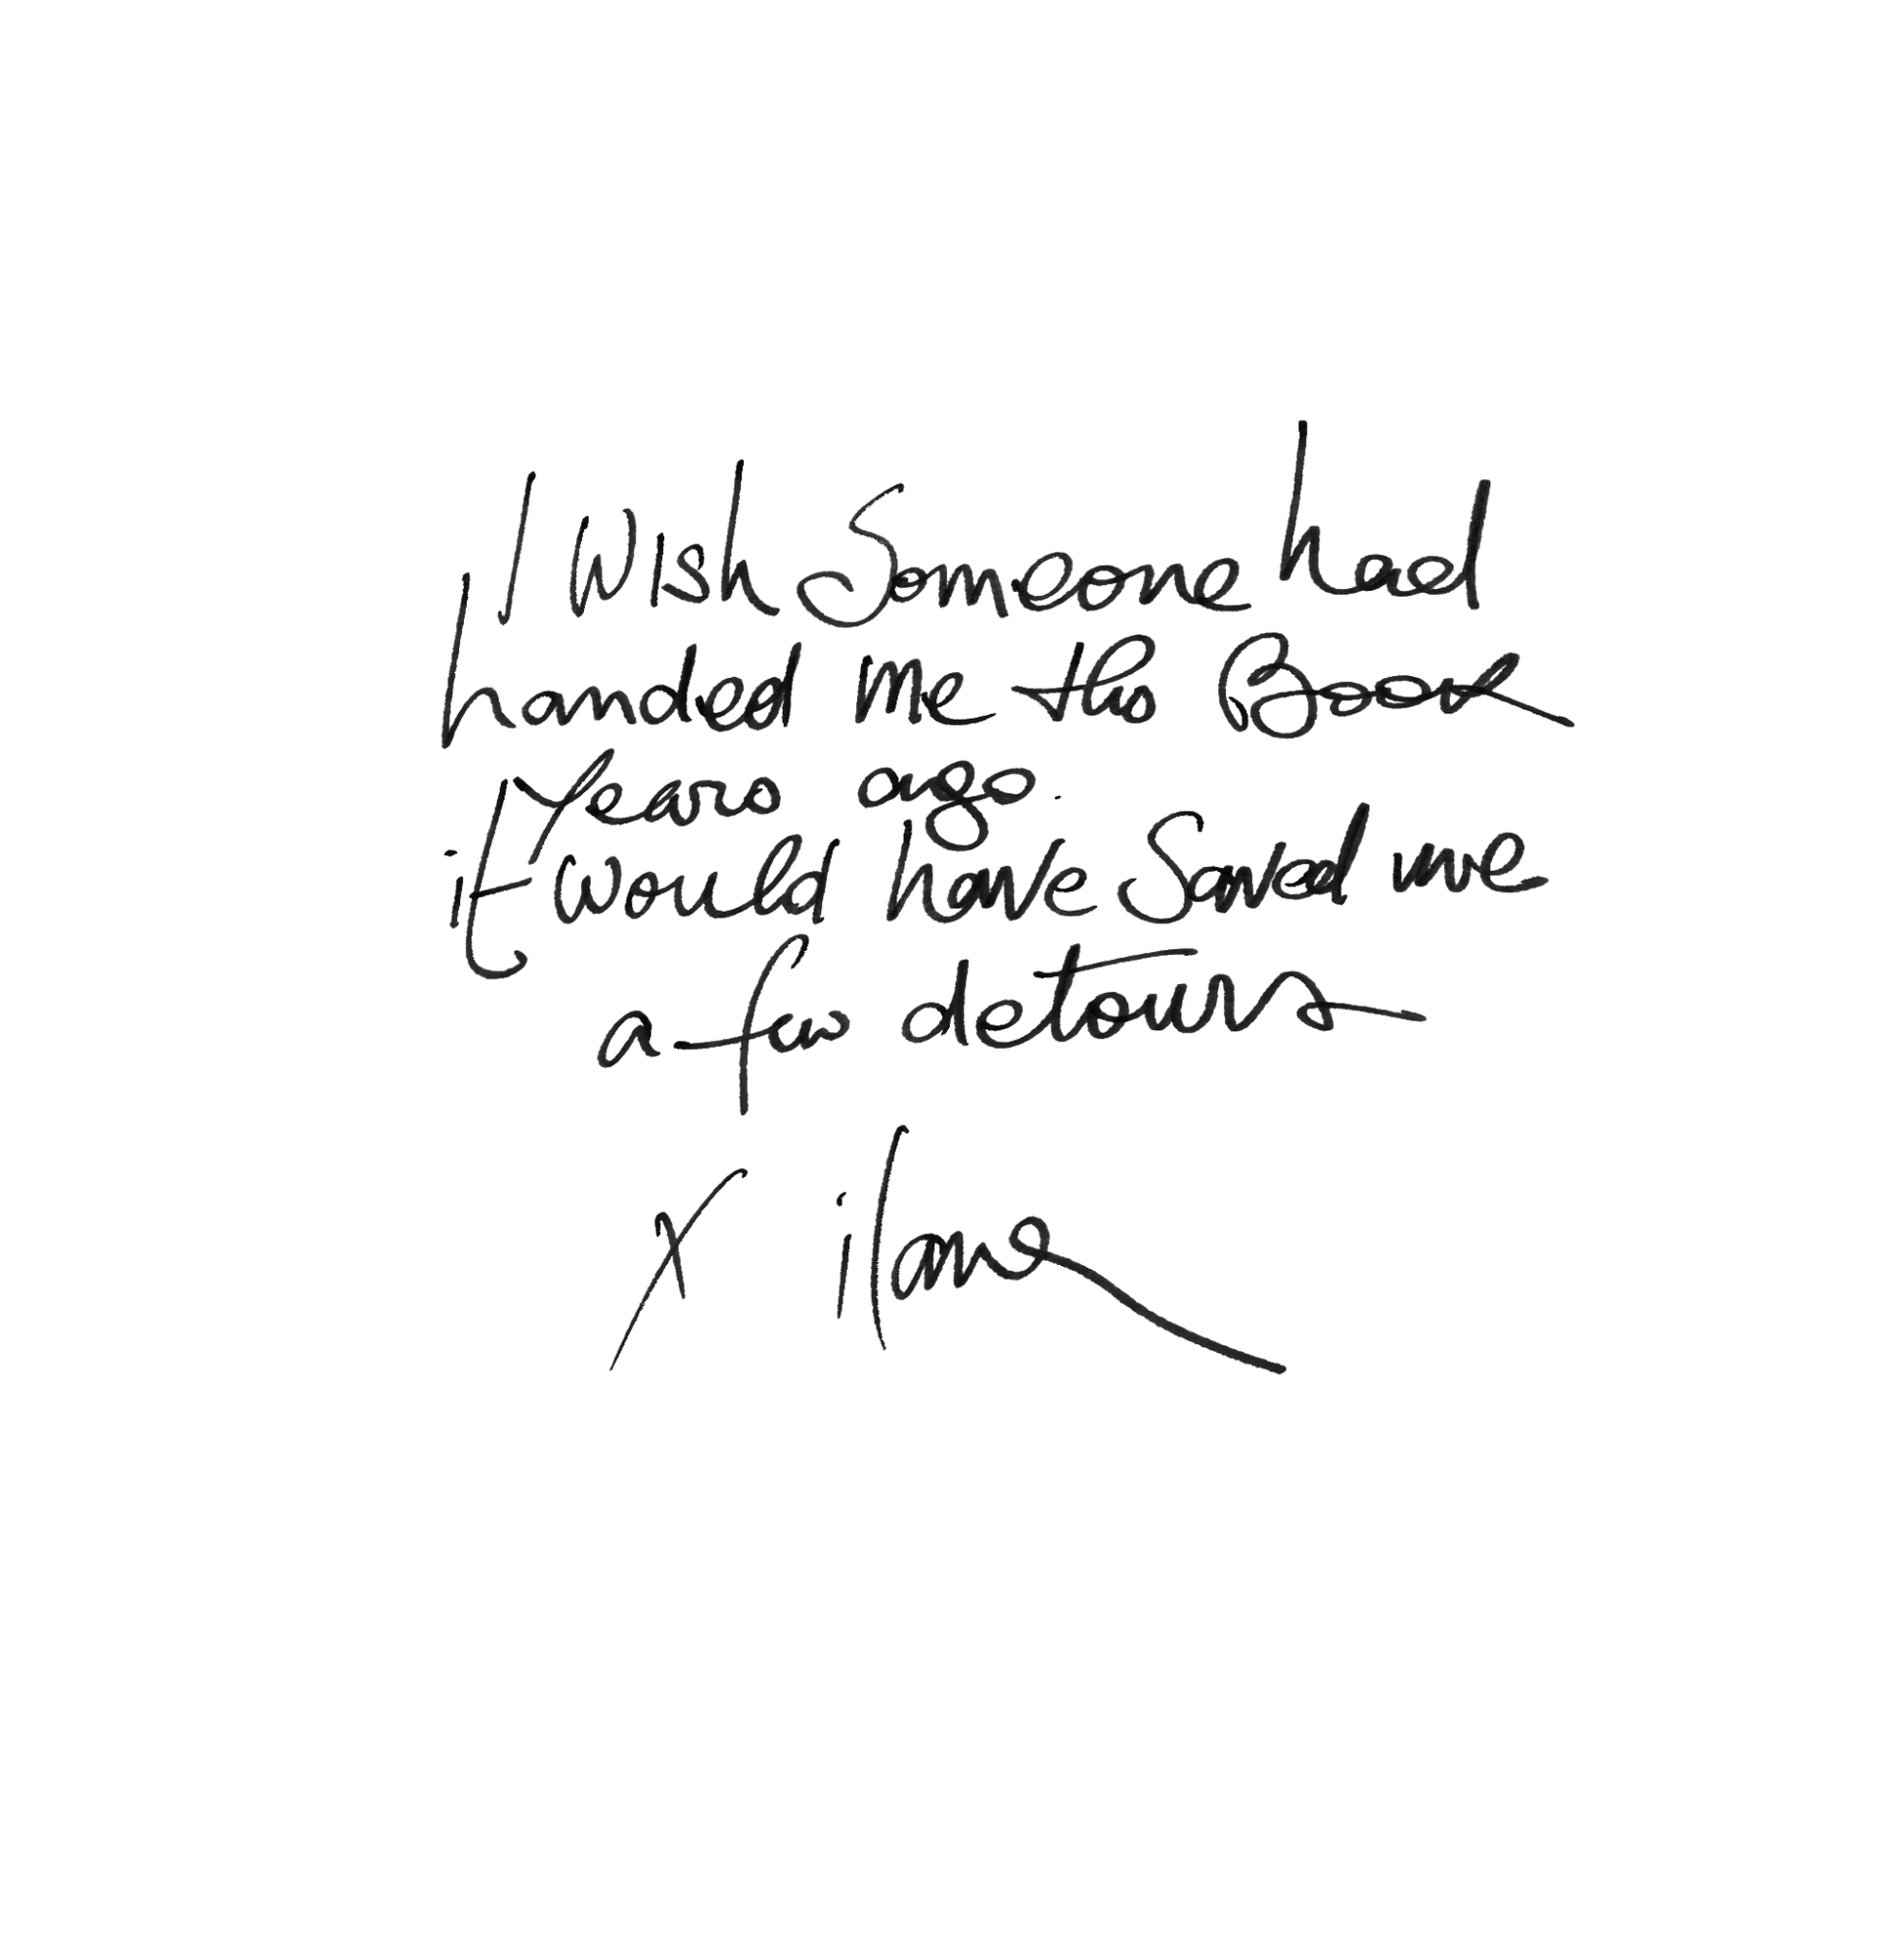 I Wish Someone had
handed me this Book
Years ago.
it would have Saved me
a few detours
x ilana